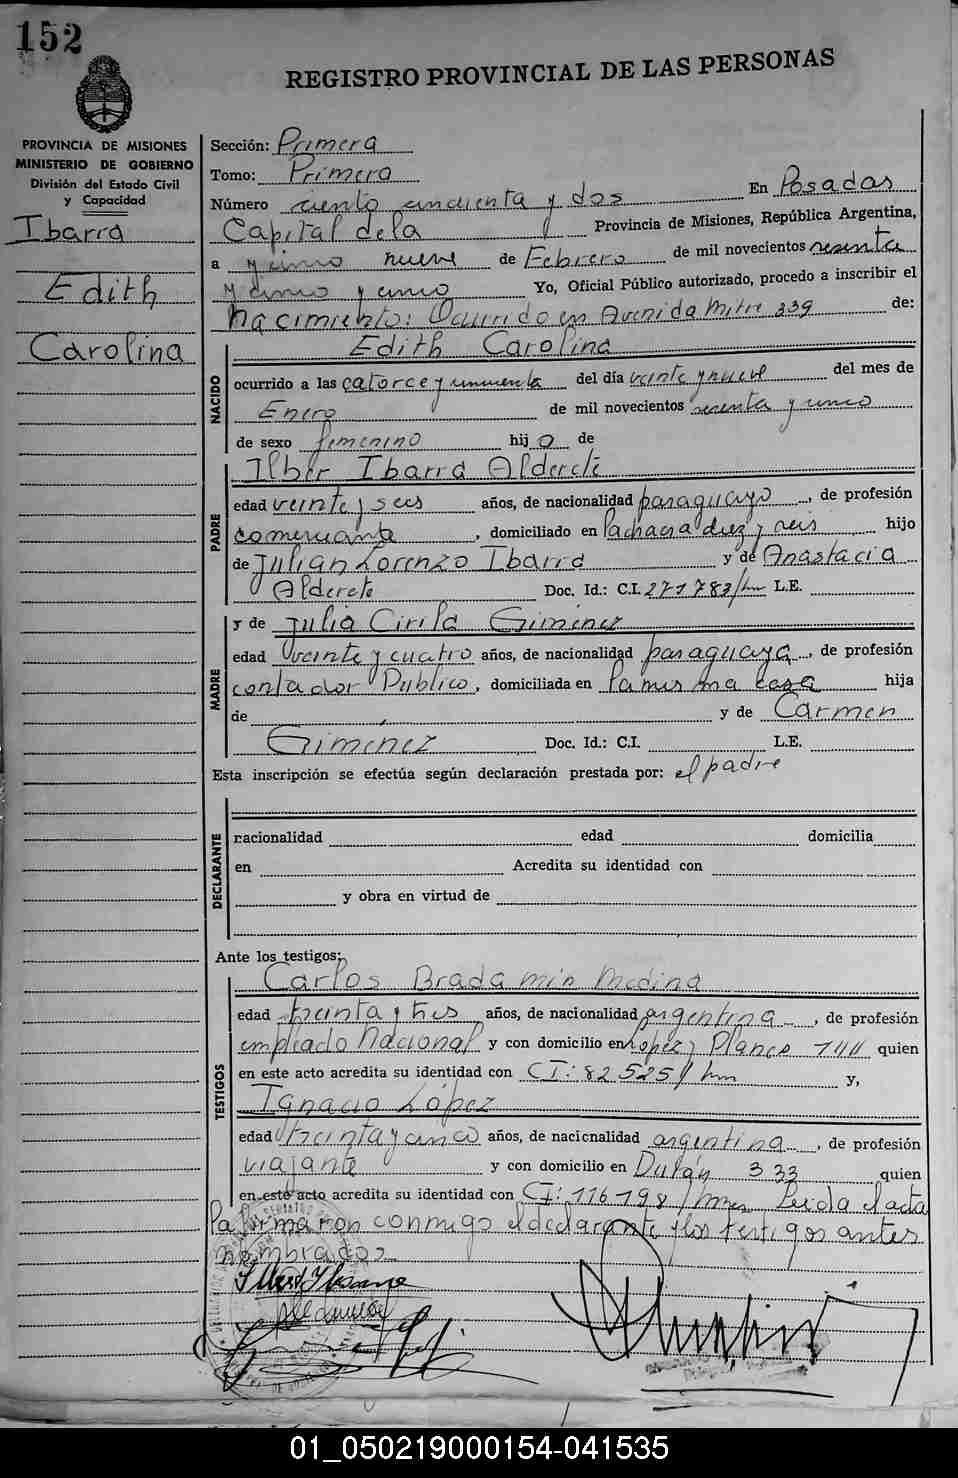 152
REGISTRO PROVINCIAL DE LAS PERSONAS
PROVINCIA DE MISIONES
MINISTERIO DE GOBIERNO
División del Estado Civil
y Capacidad
Ibarra
Edith
Carolina
Sección: Primera
Tomo: Primera
Número ciento cincuenta y dos En Posadas
Capital de la Provincia de Misiones, República Argentina,
a nueve de Febrero de mil novecientos sesenta
Yo, Oficial Público autorizado, procedo a inscribir el
nacimiento: Ocurrido en Avenida Mitre 339 de:
NACIDO
Edith Carolina
ocurrido a las catorce y cincuenta del día veinte y nueve del mes de
Enero de mil novecientos sesenta y cinco
de sexo femenino hij a de
PADRE
Ilber Ibarra Alderete
edad veinte y seis años, de nacionalidad paraguayo, de profesión
comerciante, domiciliado en Pachasa diez y seis hijo
de Julian Lorenzo Ibarra y de Anastacia
Alderete Doc. Id.: C.I. 271783/ L.E.
MADRE
y de Julia Cirila Gimenez
edad veinte y cuatro años, de nacionalidad paraguaya, de profesión
contador Público, domiciliada en la misma casa hija
de y de Carmen
Gimenez Doc. Id.: C.I. L.E.
Esta inscripción se efectúa según declaración prestada por: el padre
DECLARANTE
nacionalidad edad domicilia
en Acredita su identidad con
y obra en virtud de
Ante los testigos:
TESTIGOS
Carlos Bradamin Medina
edad treinta y tres años, de nacionalidad argentina, de profesión
empleado Nacional y con domicilio en Lopez y Planes quien
en este acto acredita su identidad con CI: 82.525/ y,
Ignacio López
edad treinta y cinco años, de nacionalidad argentina, de profesión
viajante y con domicilio en Durán 333 quien
en este acto acredita su identidad con CI: 116198/ Leida el acta
la firmaron conmigo el declarante y los testigos antes
nombrados
01_050219000154-041535